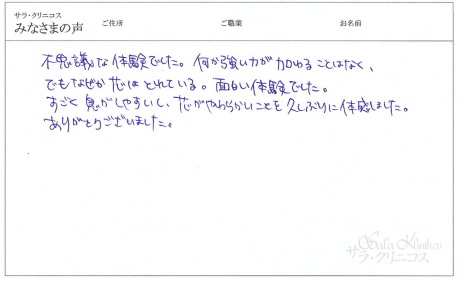 サラ・クリニコス
みなさまの声 ご住所 ご職業 お名前
不思議な体験でした。何か強い力が加わることはなく、
でもなぜか芯はとれている。面白い体験でした。
すごく息がしやすいし、芯がやわらかいことを久しぶりに体感しました。
ありがとうございました。
Sala Klinikos
サラ・クリニコス